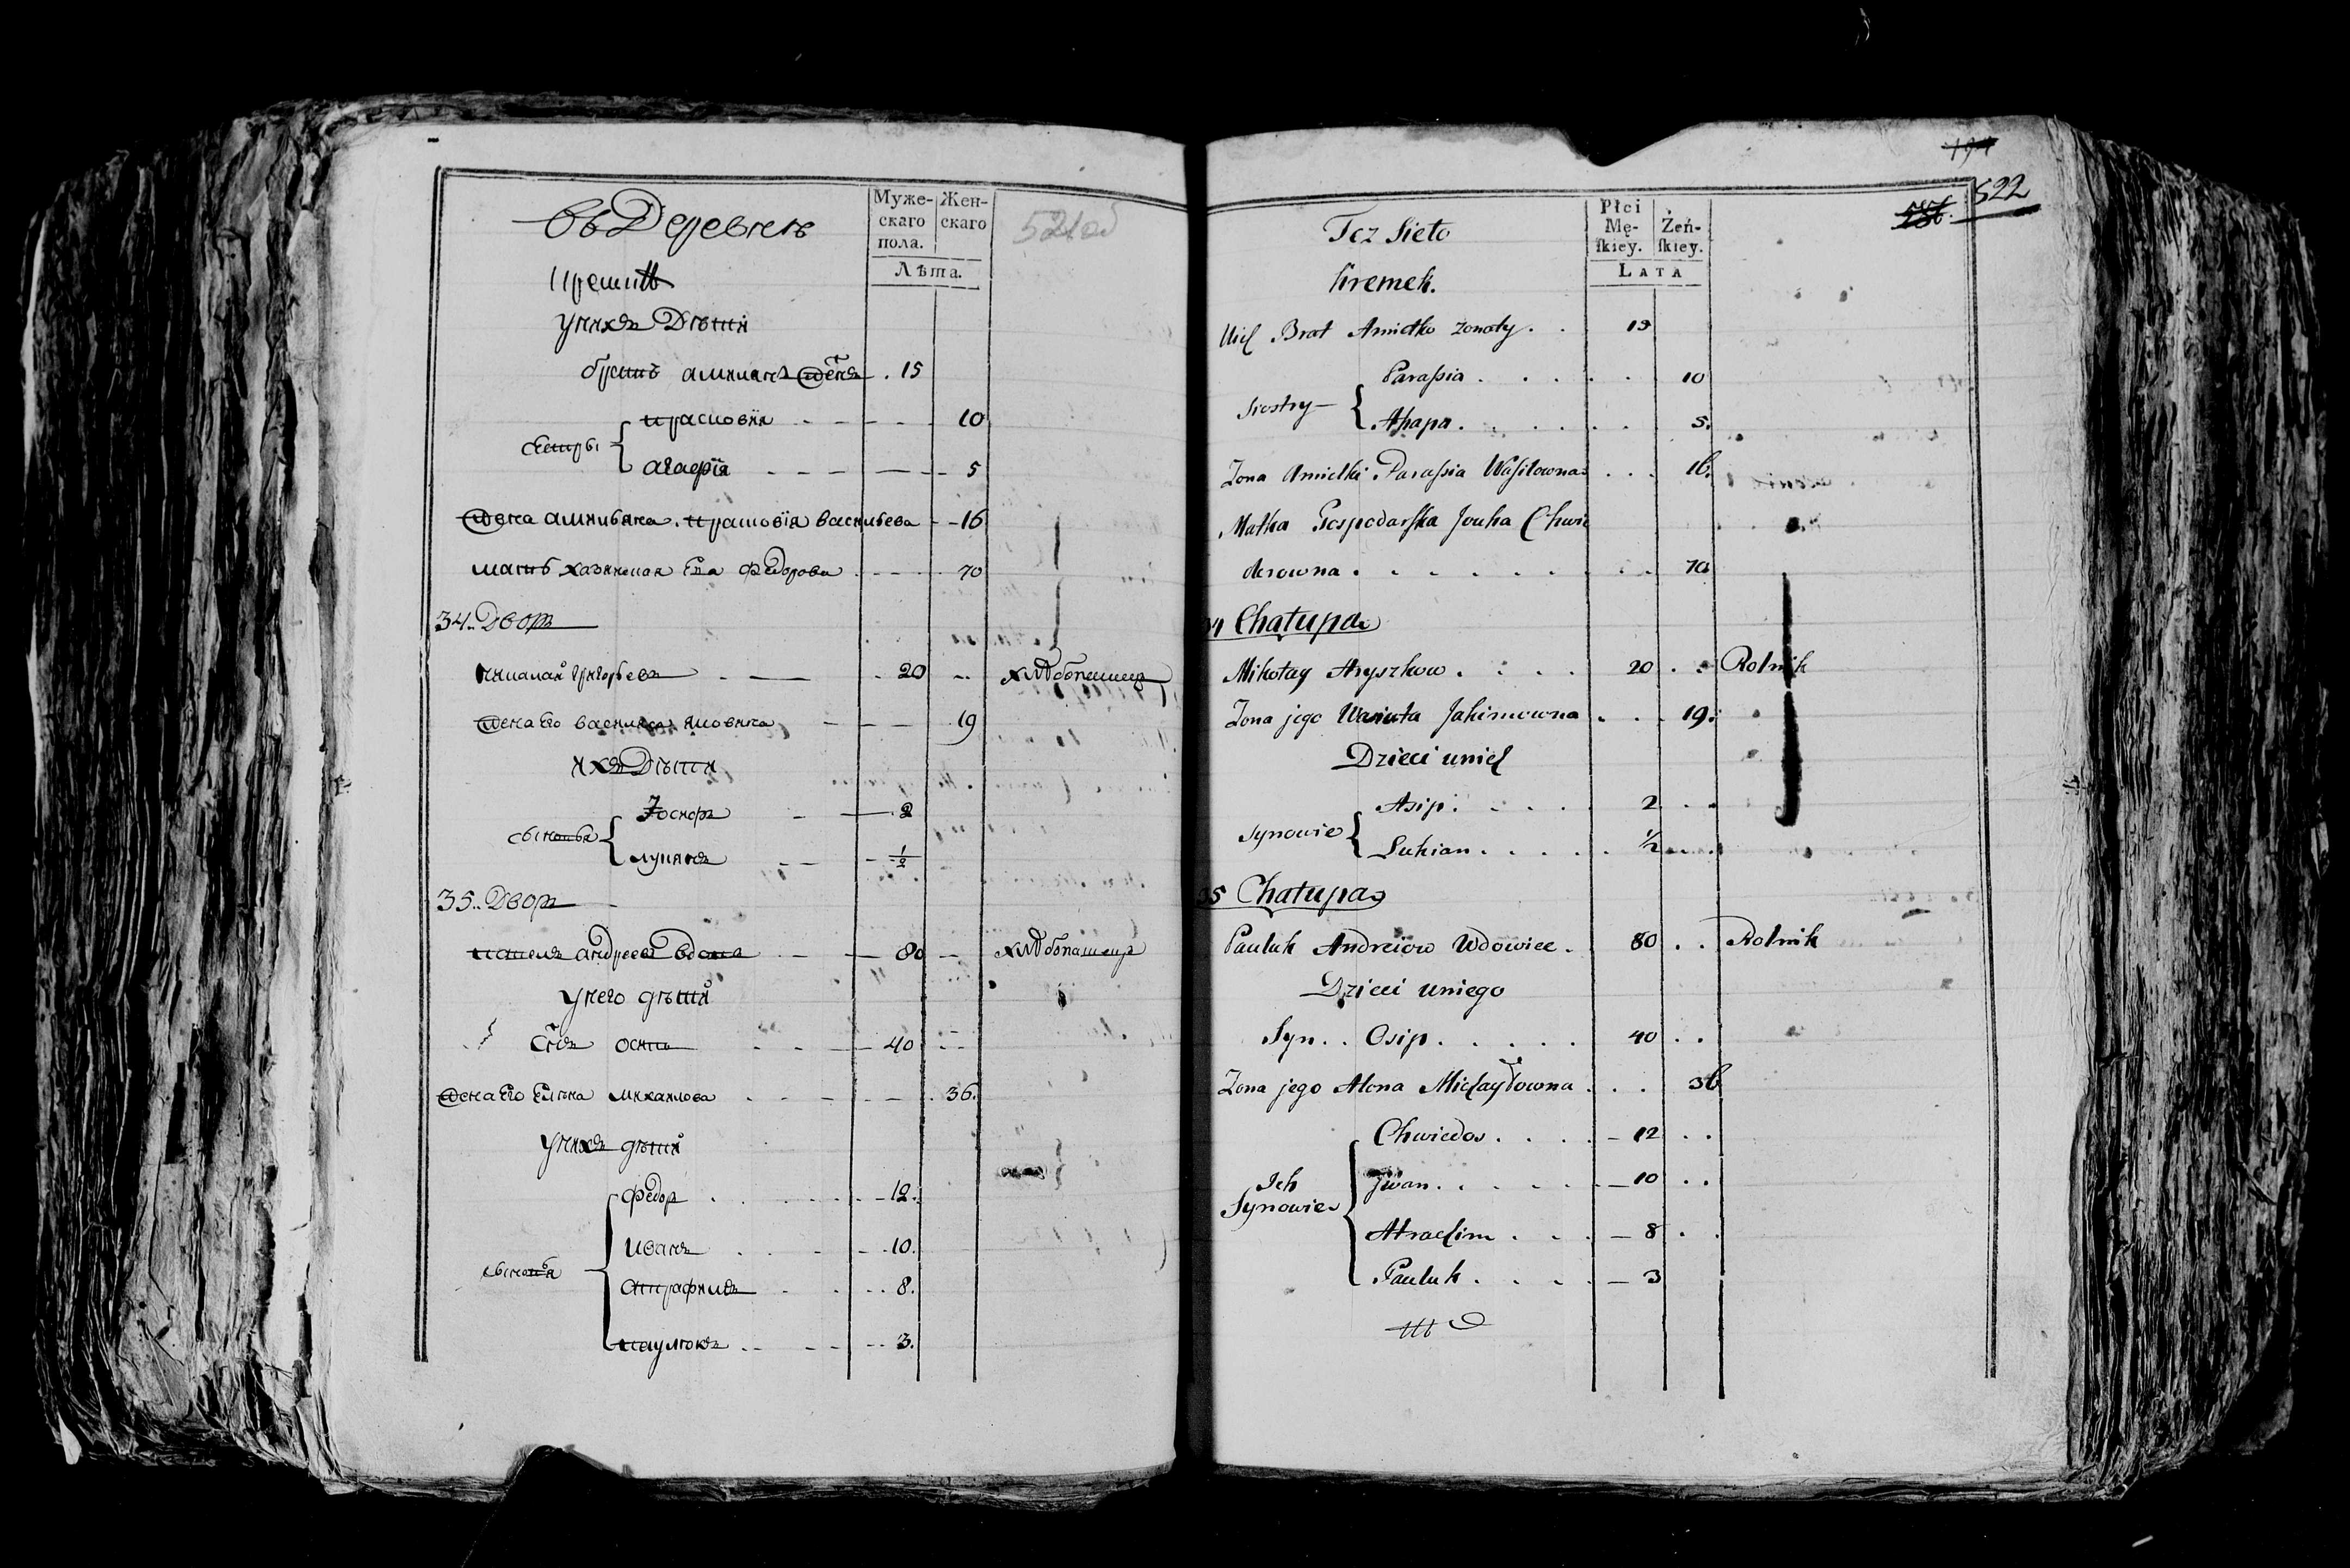 Въ Деревнѣ
Муже-
скаго
пола.
Жен-
скаго
Лѣта.
521об
У нихъ Дѣти
братъ амилианъ женатъ . 15
сестры { прасковїя 10
агафїя 5
жена амилияна прасковїя васильева 16
мать хозяиская Ева федорова 70
34. Дворъ
николай григорьевъ 20 хлѣбопашецъ
жена его василиса яковлева 19
ихъ Дѣти
сыновья { Іосифъ 2
лукянъ ½
35. Дворъ
павелъ андреевъ вдовъ 80 хлѣбопашецъ
у него дѣти
сынъ осипъ 40
жена его елена михаилова 36.
у нихъ дѣти
сыновья { федоръ 12.
иванъ 10.
8.
паулюкъ 3.
194
586.
522
Też Sieło
Kremek.
Płci
Mę-
ſkiey.
Żeń-
ſkiey.
LATA
Uich Brat Amielko żonaty . . 15
Siostry { Paraſia . . . . . 10
Ahapa . . . . . 5.
Żona Amielki Paraſia Waſilowna . . . 16.
Matka Gospodarſka Jouka Chwie
derowna . . . . . . . . 70
34 Chałupa
Mikołay Hryszkow . . . . 20 . . Rolnik
Żona jego Wasiuta Jakimowna . . . 19.
Dzieci unich
Synowie { Asip . . . . 2 . .
Lukian . . . . . ½ . . .
35 Chałupa
Pauluk Andreiow Wdowiec . 80 . . Rolnik
Dzieci uniego
Syn . . Osip . . . . . 40 . .
Żona jego Alona Michayłowna . . . 36
Ich
Synowie { Chwiedos . . . . 12 . .
Jwan . . . . . 10 . .
Atrachim . . . 8 . .
Pauluk . . . . 3